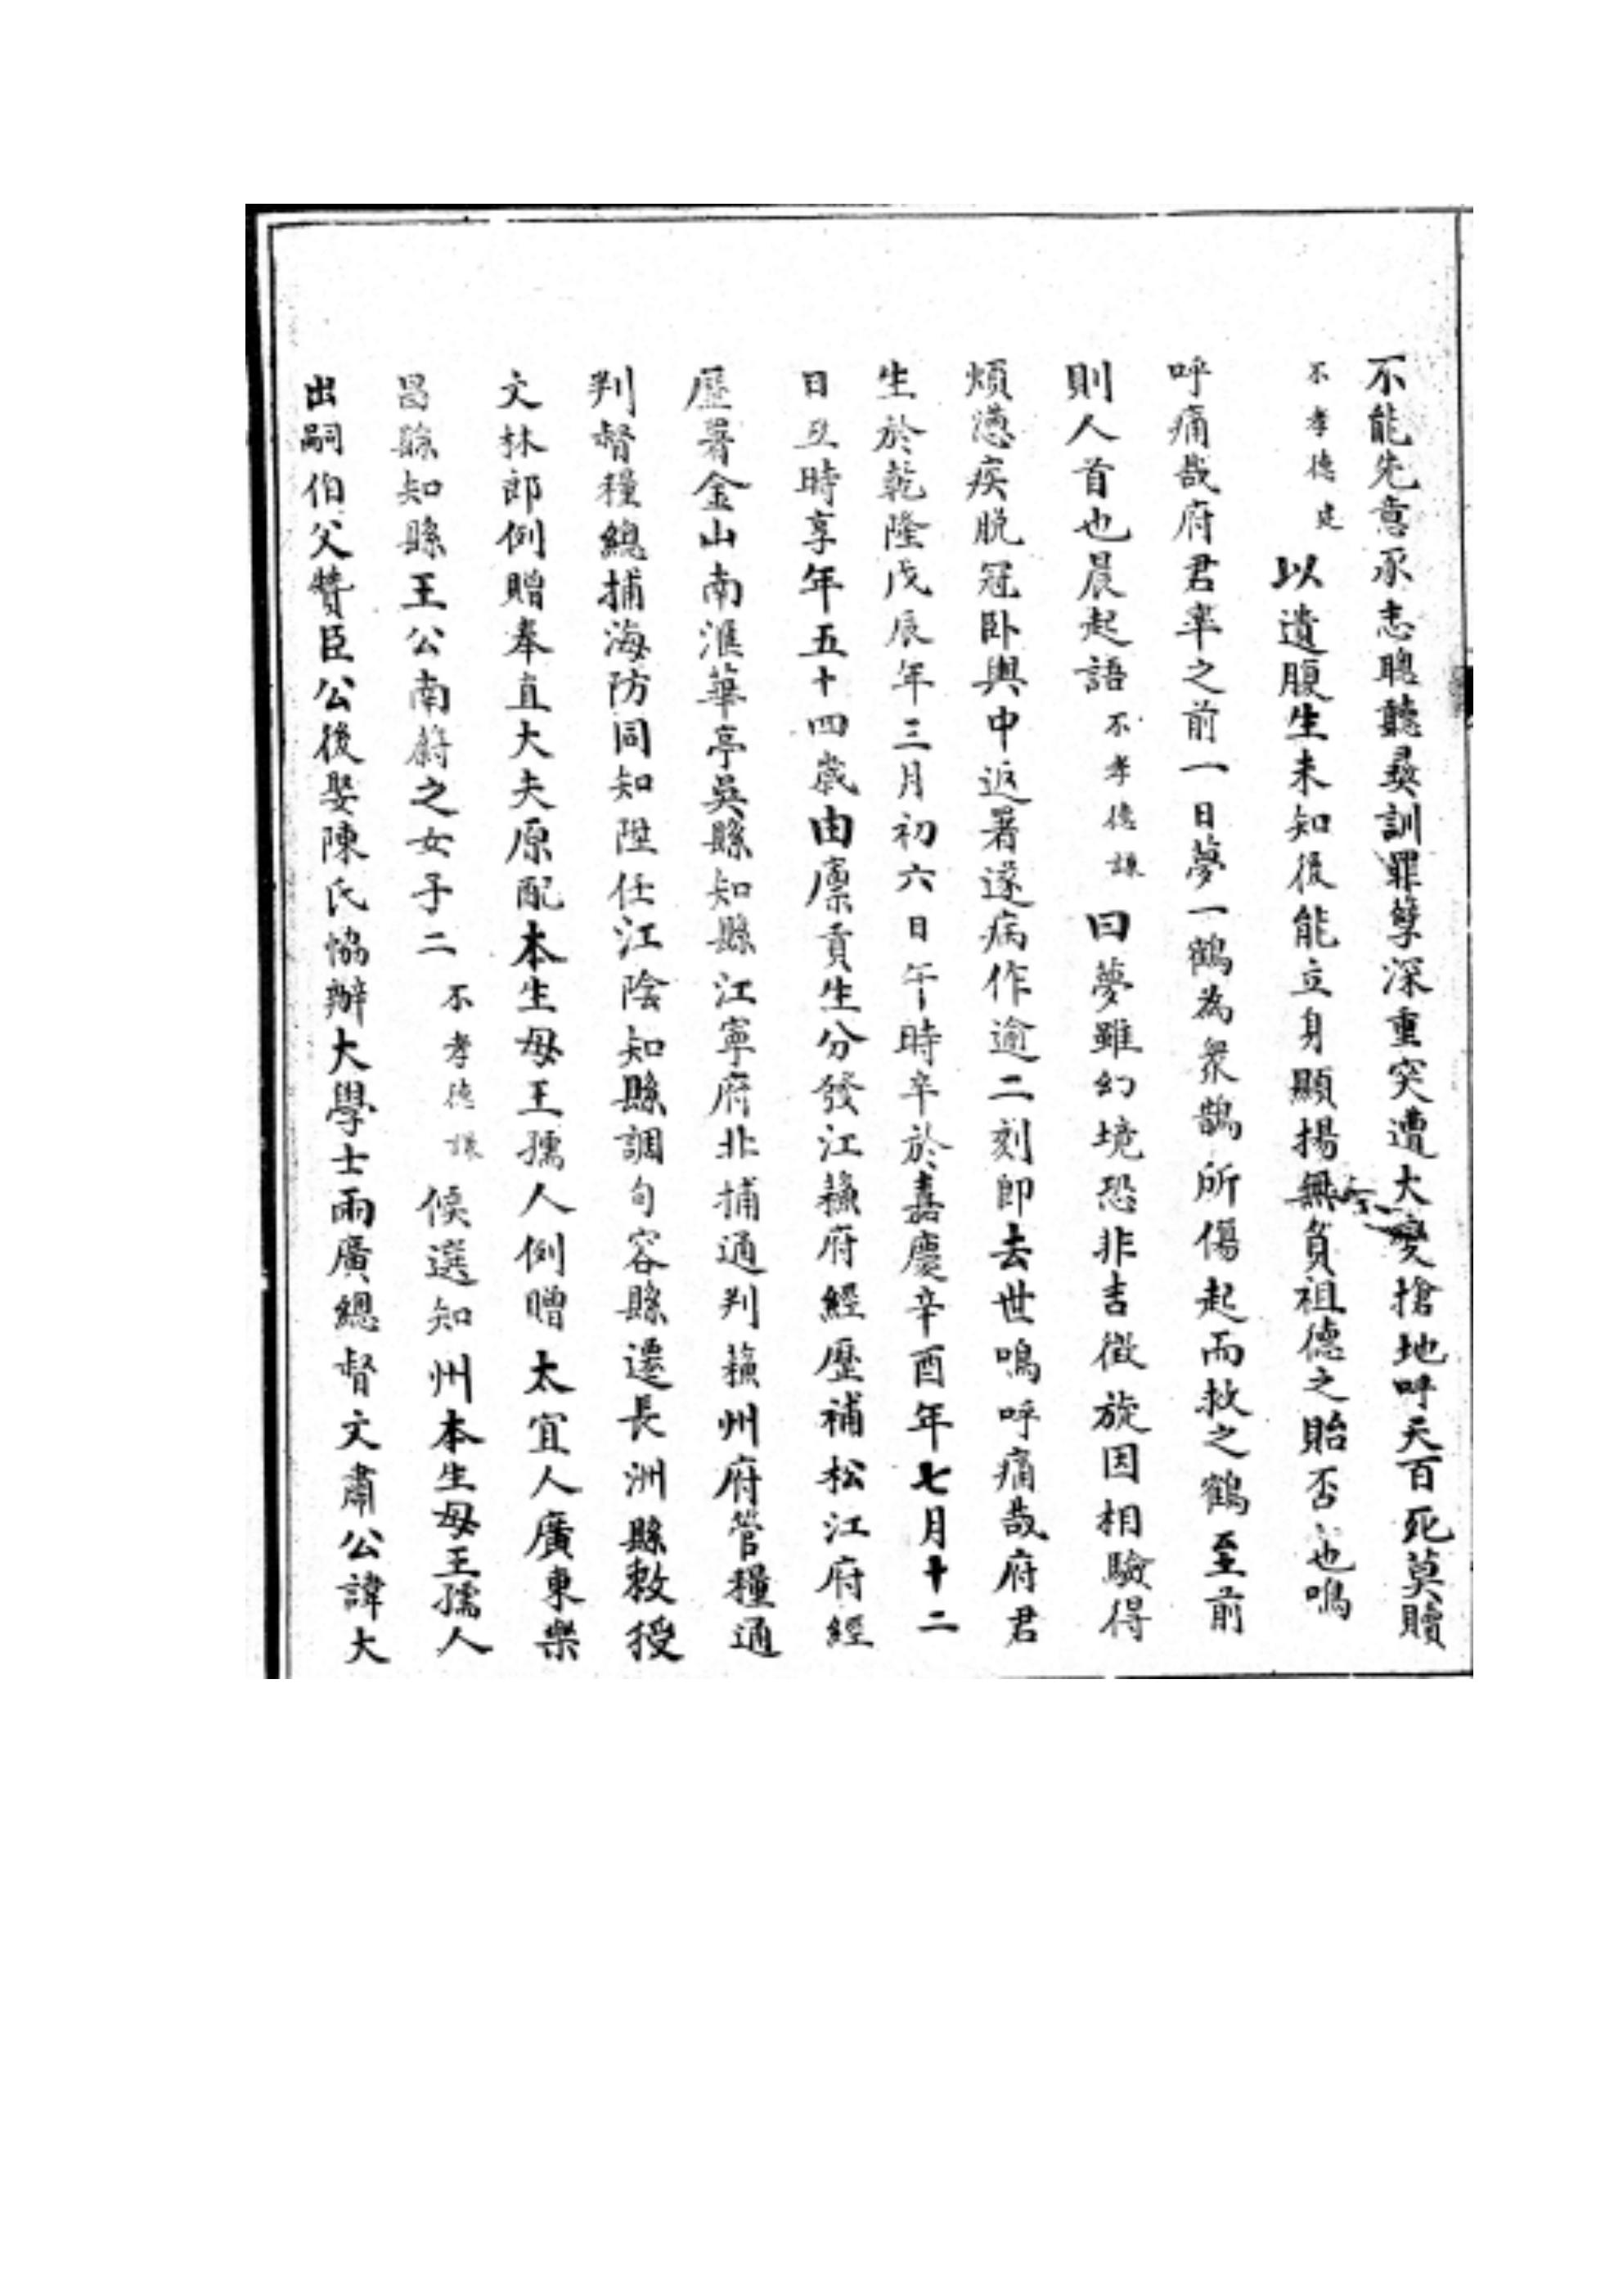 不能先意承志聰聽彝訓罪孽深重突遭大變搶地呼天百死莫贖
不孝德建以遺腹生未知後能立身顯揚無負祖德之貽否也嗚
呼痛哉府君率之前一日夢一鶴為衆鵲所傷起而救之鶴至前
則人首也晨起語不孝德謙曰夢雖幻境恐非吉徵旋因相驗得
煩懣疾脫冠卧輿中返署遂病作逾二刻即去世嗚呼痛哉府君
生於乾隆戊辰年三月初六日午時卒於嘉慶辛酉年七月十二
日丑時享年五十四歲由廩貢生分發江蘇府經歷補松江府經
歷署金山南滙華亭吳縣知縣江寧府北捕通判蘇州府管糧通
判督糧總捕海防同知陞任江陰知縣調句容縣遷長洲縣敕授
文林郎例贈奉直大夫原配本生母王孺人例贈太宜人廣東樂
昌縣知縣王公南蔚之女子二不孝德謙候選知州本生母王孺人
出嗣伯父贊臣公後娶陳氏協辦大學士兩廣總督文肅公諱大